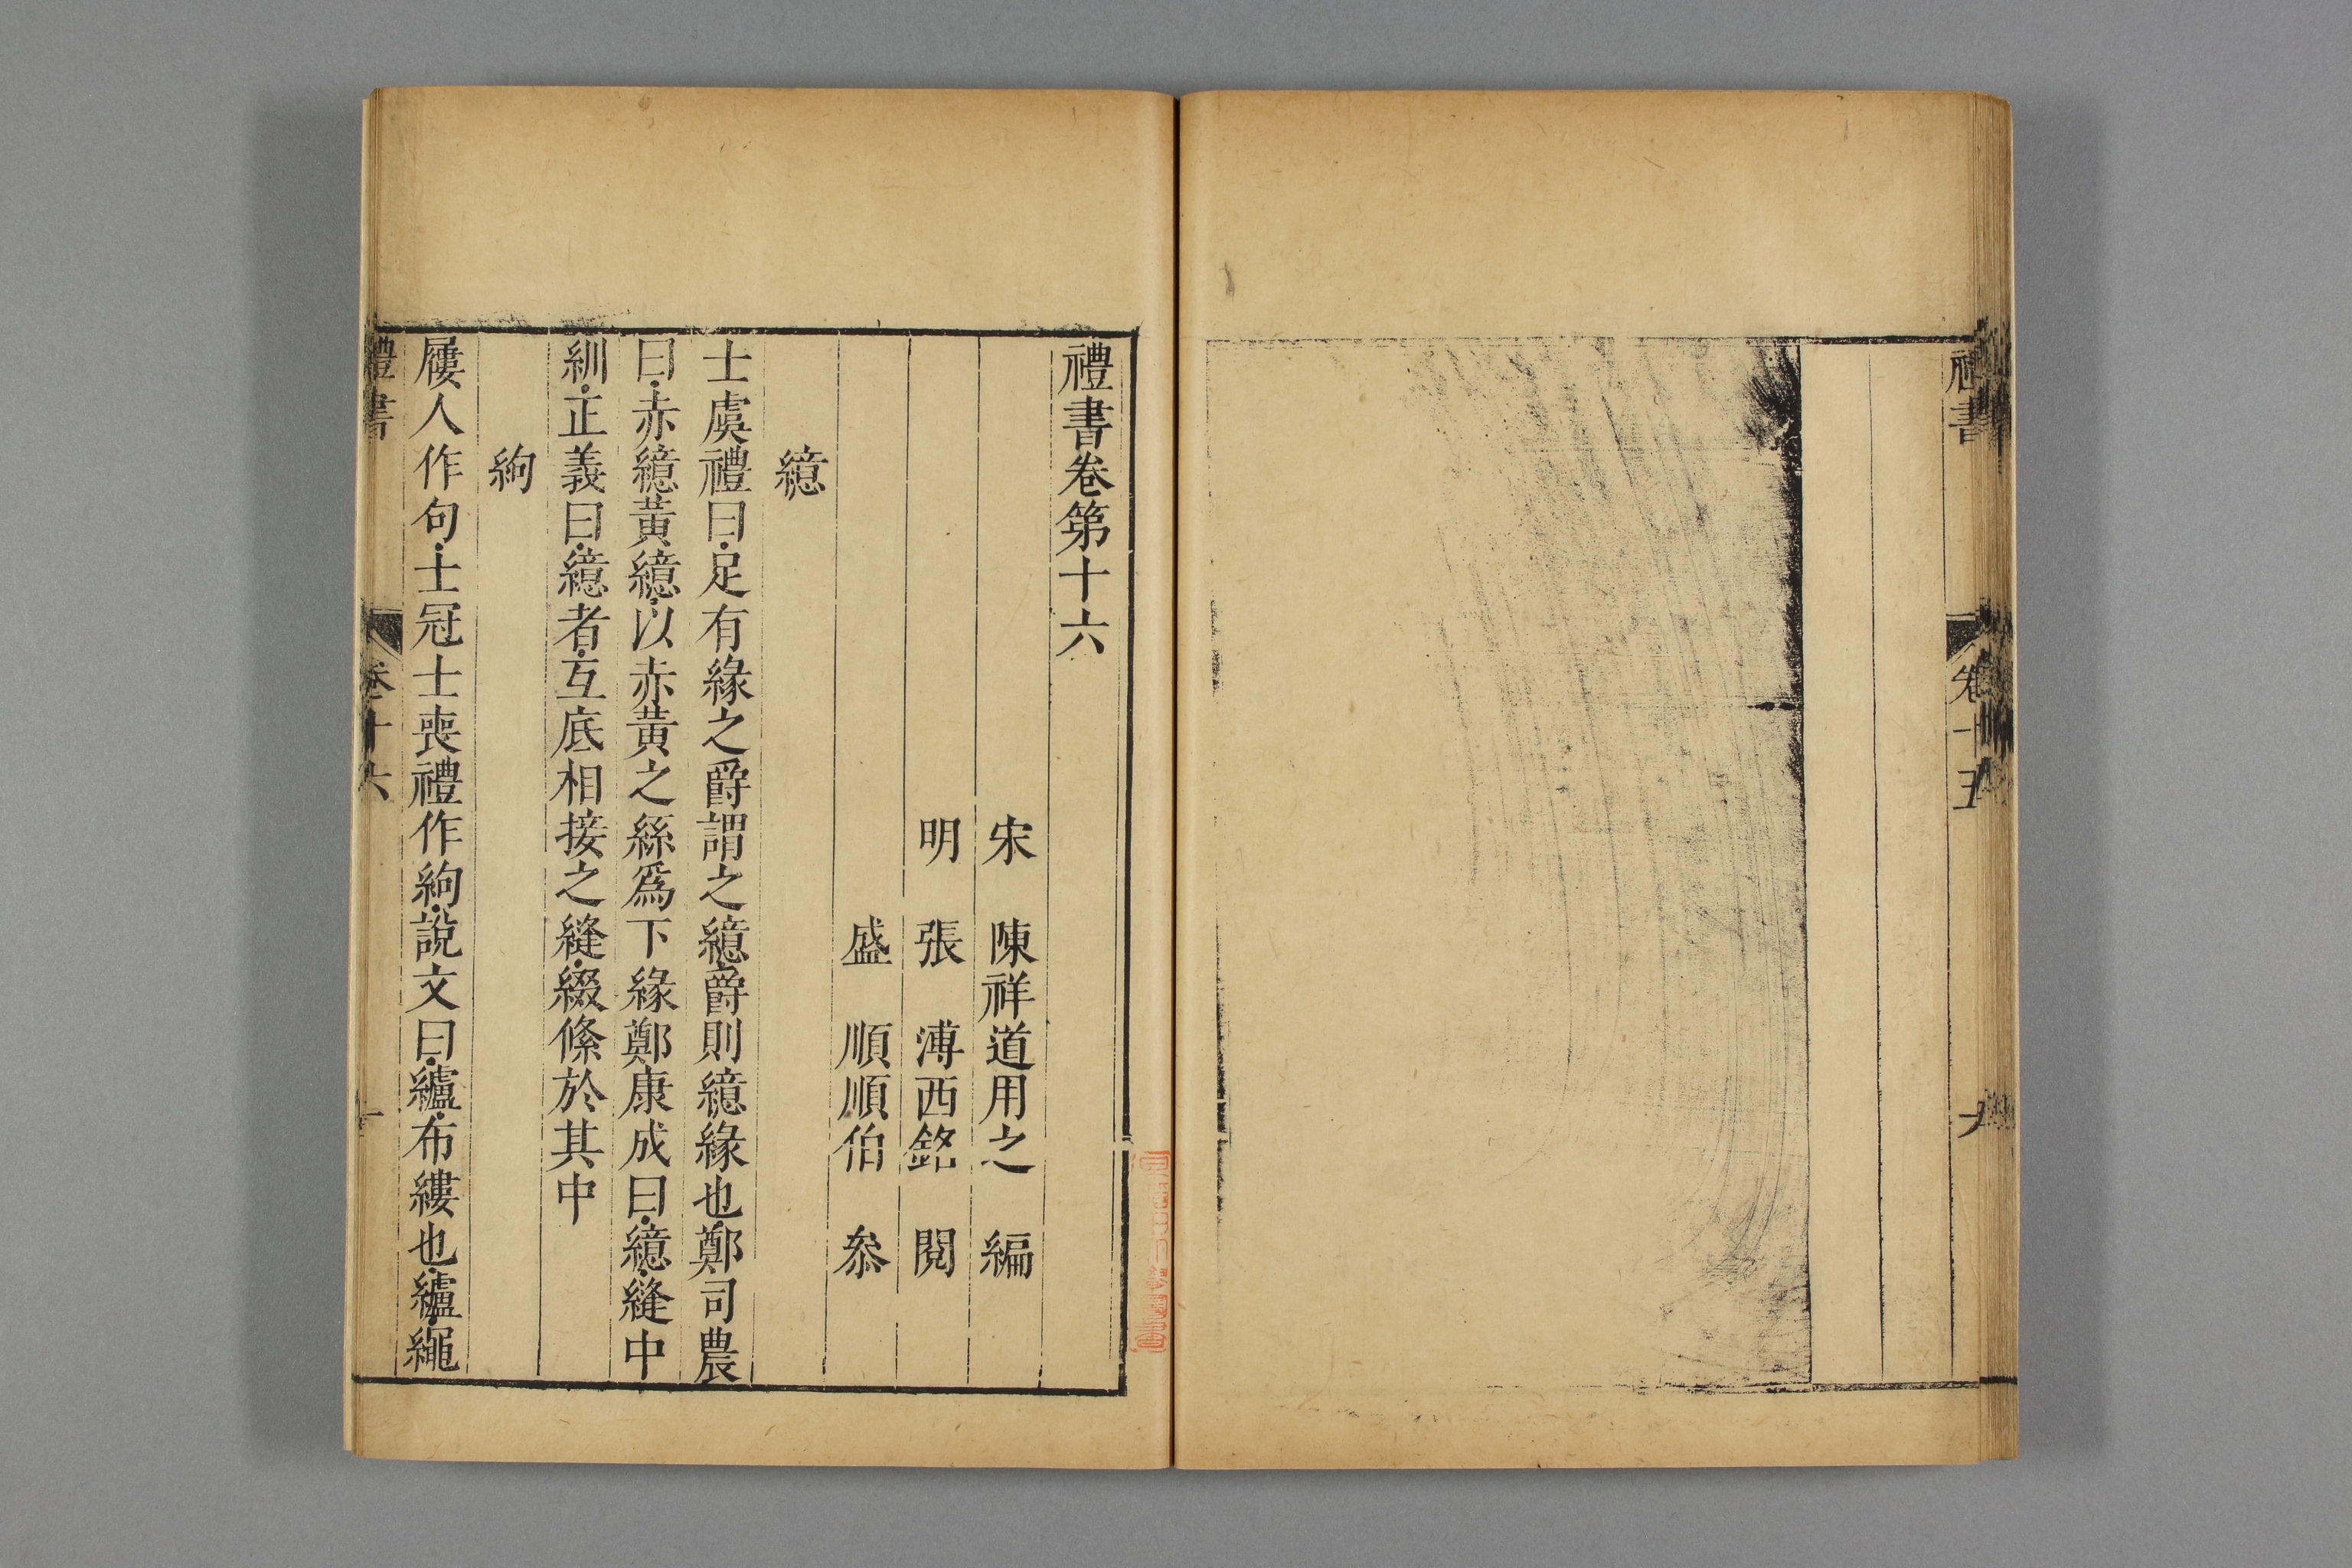 禮書
卷十五
禮書卷第十六
宋 陳祥道用之 編
明 張 溥西銘 閱
盛 順順伯 叅
繶
士虞禮曰足有緣之爵謂之繶爵則繶緣也鄭司農
曰赤繶黃繶以赤黃之絲爲下緣鄭康成曰繶縫中
紃正義曰繶者互底相接之縫綴絛於其中
絇
屨人作句士冠士喪禮作絇說文曰纑布縷也纑繩
禮書
卷十六
一